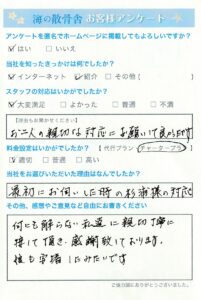 海の散骨舎 お客様アンケート
アンケートを匿名でホームページに掲載してもよろしいですか?
はい いいえ
当社を知ったきっかけは何でしたか?
インターネット 紹介 その他(
スタッフの対応はいかがでしたか?
大変満足 よかった 普通 不満
【理由もお聞かせください】
お二人の親切な対応にお願いして良かったです
料金設定はいかがでしたか? 【代行プラン・チャータープラン】
適切 普通 高い
当社をお選びいただいた理由はなんでしたか?
最初にお伺いした時の杉浦様の対応
その他、感想やご意見など自由にお書きください
何にも解らない私達に親切丁寧に
接して頂き、感謝致しております。
後も宇堵にみたいです
ご協力誠にありがとうございました。